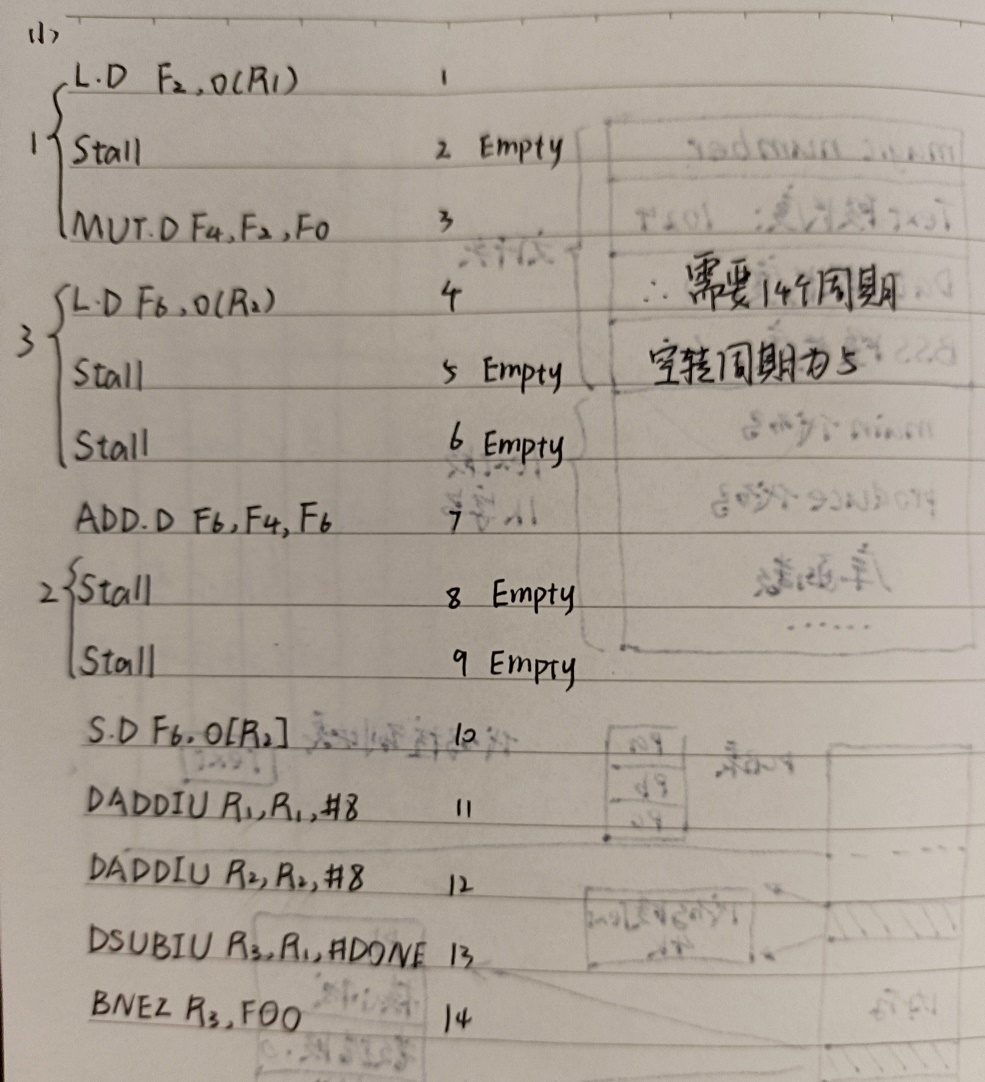 (1)
L.D F2,0(R1) 1
1 Stall 2 Empty
MUT.D F4,F2,F0 3
L.D F6,0(R2) 4 ∴ 需要14个周期
3 Stall 5 Empty 空转周期为5
Stall 6 Empty
ADD.D F6,F4,F6 7
2 Stall 8 Empty
Stall 9 Empty
S.D F6,0[R2] 10
DADDIU R1,R1,#8 11
DADDIU R2,R2,#8 12
DSUBIU R3,R1,#DONE 13
BNEZ R3,FOO 14